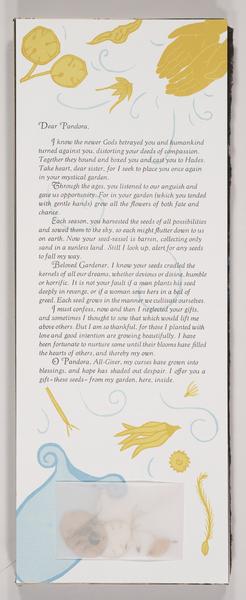 Dear Pandora,
I know the newer Gods betrayed you and humankind
turned against you, distorting your deeds of compassion.
Together they bound and boxed you and cast you to Hades.
Take heart, dear sister, for I seek to place you once again
in your mystical garden.
Through the ages, you listened to our anguish and
gave us opportunity. For in your garden (which you tended
with gentle hands) grew all the flowers of both fate and
chance.
Each season, you harvested the seeds of all possibilities
and sowed them to the sky, so each might flutter down to us
on earth. Now your seed-vessel is barren, collecting only
sand in a sunless land. Still I look up, alert for any seeds
to fall my way.
Beloved Gardener, I know your seeds cradled the
kernels of all our dreams, whether devious or divine, humble
or horrific. It is not your fault if a man plants his seed
deeply in revenge, or if a woman sows hers in a bed of
greed. Each seed grows in the manner we cultivate ourselves.
I must confess, now and then I neglected your gifts,
and sometimes I thought to sow that which would lift me
above others. But I am so thankful, for those I planted with
love and good intention are growing beautifully. I have
been fortunate to nurture some until their blooms have filled
the hearts of others, and thereby my own.
O Pandora, All-Giver, my curses have grown into
blessings, and hope has shaded out despair. I offer you a
gift–these seeds–from my garden, here, inside.